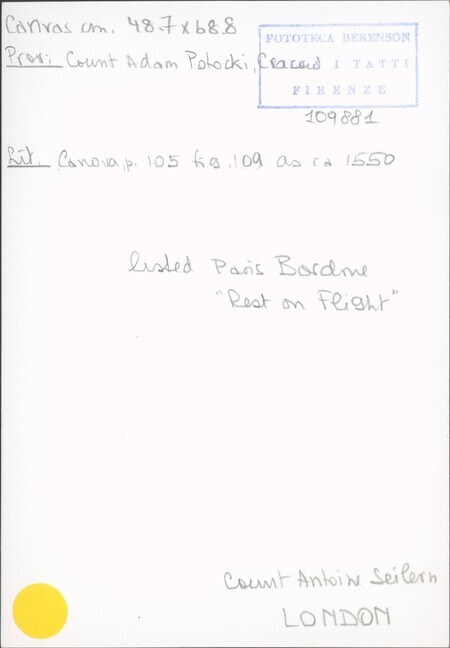 Canvas cm. 48.7 x 68.8
Prov: Count Adam Potocki, Cracow
FOTOTECA BERENSON
I TATTI
FIRENZE
109881
Lit. Canova, p. 105 fig. 109 as ca 1550
listed Paris Bordone
"Rest on Flight"
Count Antoine Seilern
LONDON